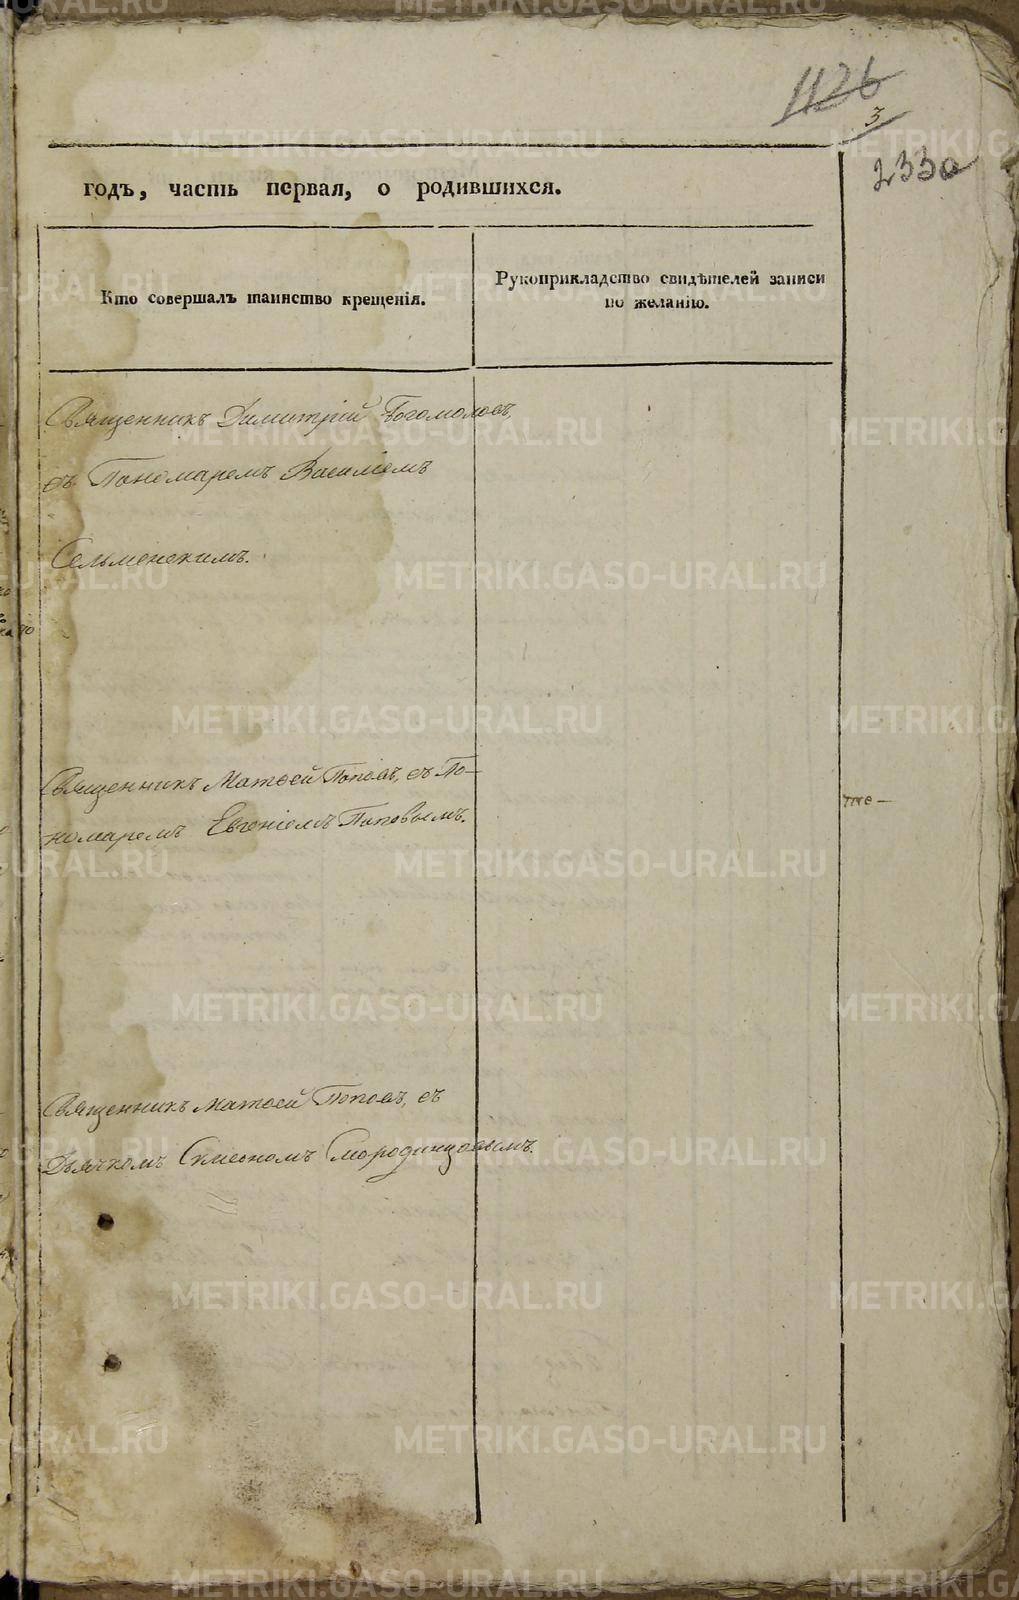 1126
3
233а
годъ, часть первая, о родившихся.
Кто совершалъ таинство крещенія.
Рукоприкладство свидѣтелей записи
по желанію.
Священникъ Димитрій Богомоловъ,
съ Пономаремъ Василіемъ
Сельменскимъ.
Священникъ Матѳей Поповъ, съ По-
номаремъ Евгеніемъ Поповымъ.
Священникъ Матѳей Поповъ, съ
Дьячкомъ Смородинцовымъ.
METRIKI.GASO-URAL.RU